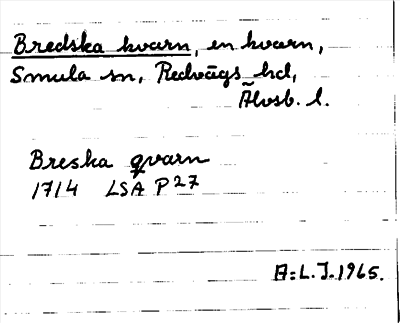 Bredska kvarn, en kvarn,
Smula sn, Redvägs hd,
Älvsb. l.
Breska qvarn
1714 LSA P27
A:L.J.1965.